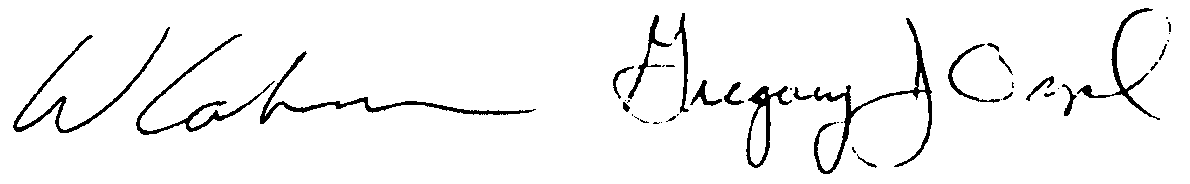 W Kahn Gregory J Opel